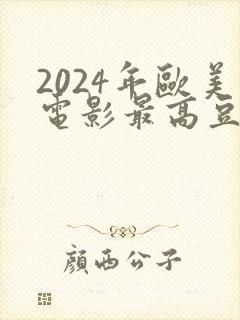 2024年歐美
電影最高豆
顏西公子